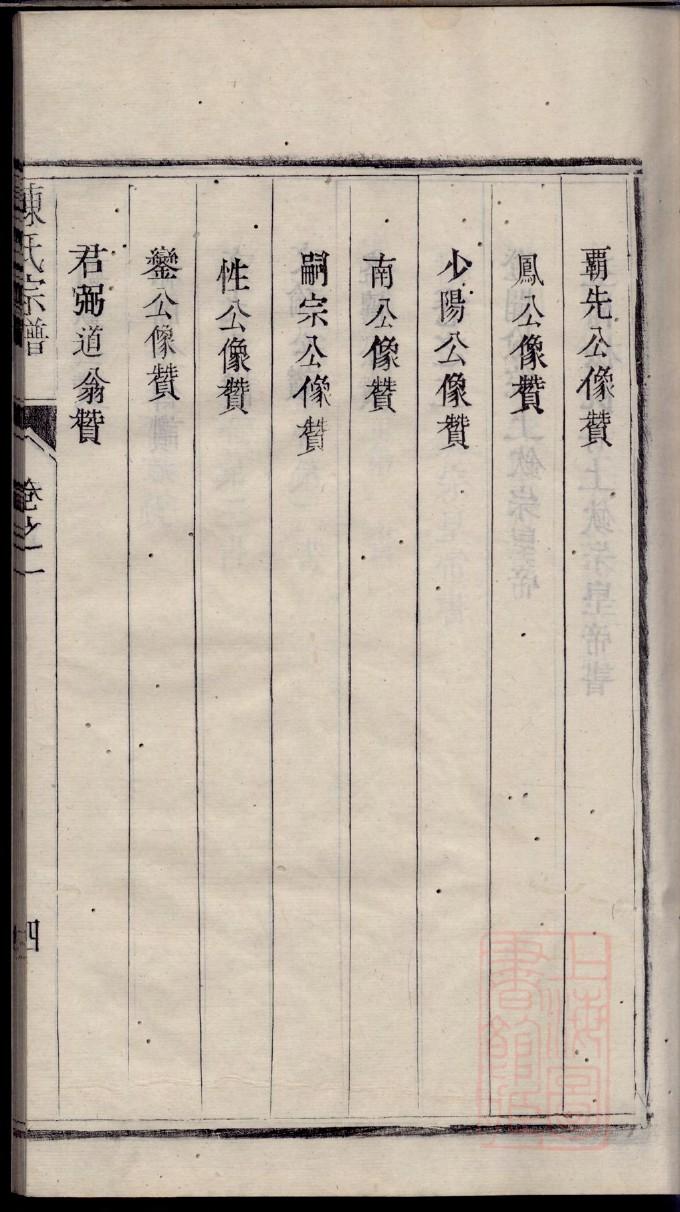 覇先公像贊
鳳公像贊
少陽公像贊
南公像贊
嗣宗公像贊
性公像贊
鑾公像贊
君弼道翁贊
陳氏宗譜
卷之一
四
上海圖書館藏